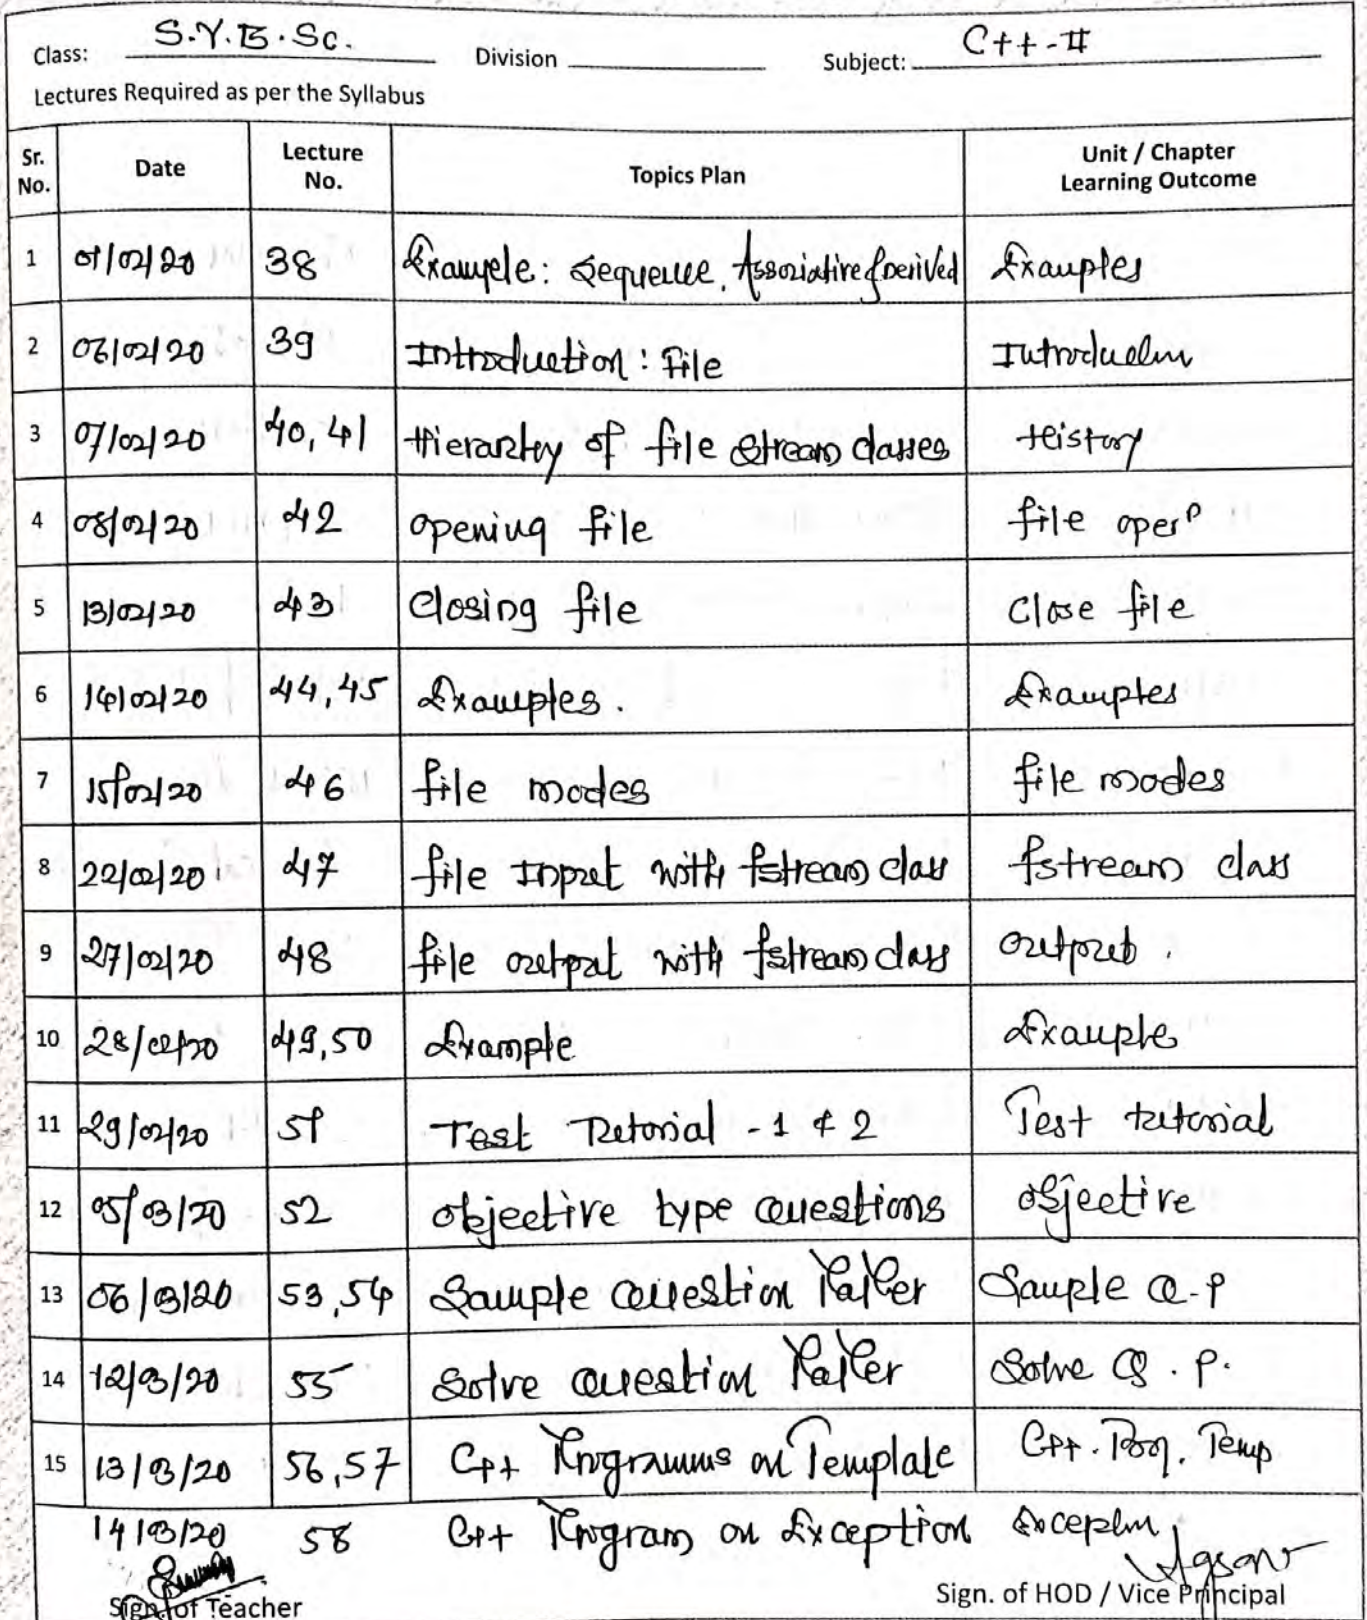 Class: S.Y.B.Sc. Division Subject: C++-II
Lectures Required as per the Syllabus
Sr. No. Date Lecture No. Topics Plan Unit / Chapter Learning Outcome
1 01/02/20 38 Example: Sequence, Associative & Derived Examples
2 06/02/20 39 Introduction: File Introduction
3 07/02/20 40, 41 Hierarchy of file stream classes History
4 08/02/20 42 opening file file opern
5 13/02/20 43 Closing file Close file
6 14/02/20 44, 45 Examples. Examples
7 15/02/20 46 file modes file modes
8 22/02/20 47 file Input with fstream class fstream class
9 27/02/20 48 file output with fstream class output.
10 28/02/20 49,50 Example Example
11 29/02/20 51 Test Tutorial - 1 & 2 Test tutorial
12 05/03/20 52 objective type questions objective
13 06/03/20 53,54 Sample question Paper Sample Q.P
14 12/03/20 55 Solve question Paper Solve Q.P.
15 13/03/20 56,57 Cpp Programms on Template Cpp. Prog. Temp
14/03/20 58 Cpp Program on Exception Exception
Sign. of Teacher Sign. of HOD / Vice Principal